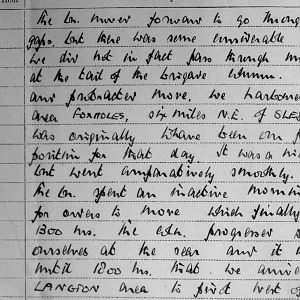 The Bn. moved forward to go through
gaps, but there was some considerable
we did not in fact pass through un
at the tail of the Brigade column.
and protracted move, we harboured
area FOXHOLES, six miles N.E. of SLED
was originally to have been our f
position for that day. It was a ni
but went comparatively smoothly.
The Bn. spent an inactive mornin
for orders to move which finally
1300 hrs. The column progressed s
ourselves at the rear and it w
until 1800 hrs. that we arrive
LANGTON area to first west of